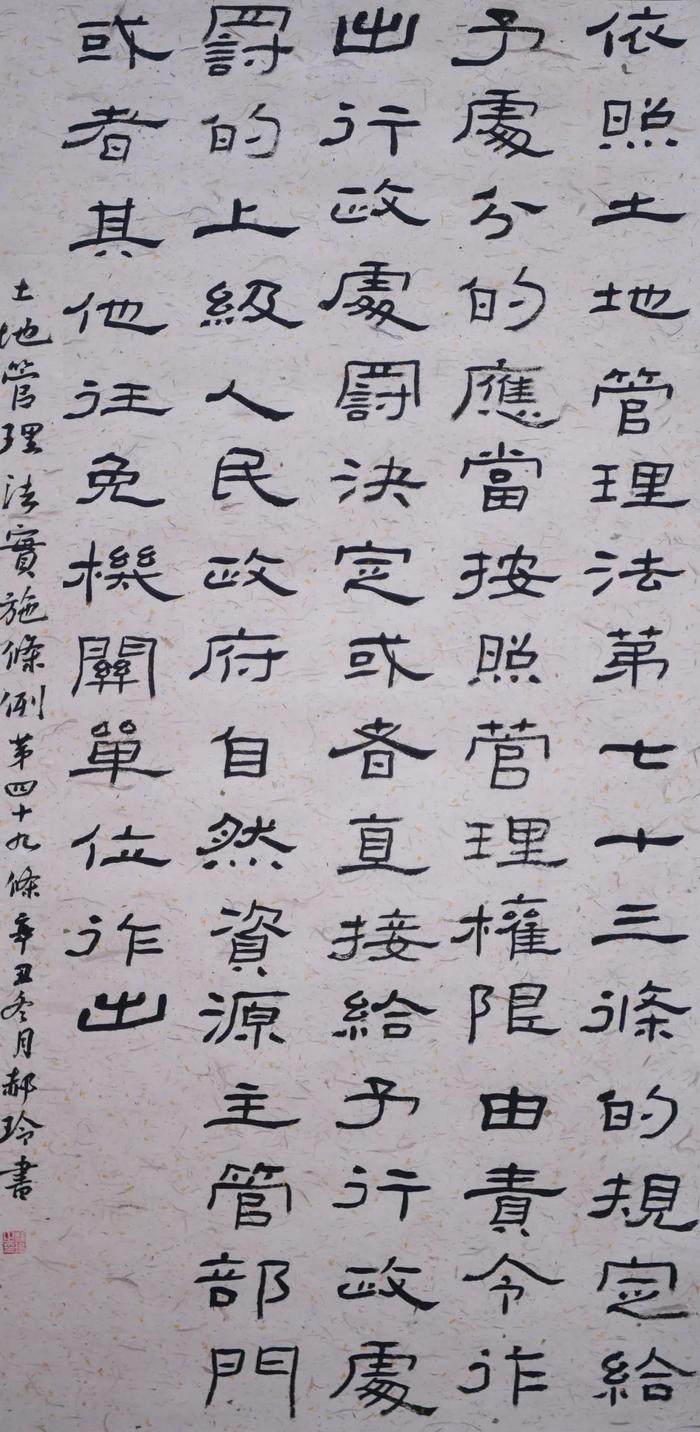 依照土地管理法第七十三條的規定給
予處分的應當按照管理權限由責令作
出行政處罰決定或者直接給予行政處
罰的上級人民政府自然資源主管部門
或者其他任免機關單位作出
土地管理法實施條例第四十九條辛丑冬月郝玲書